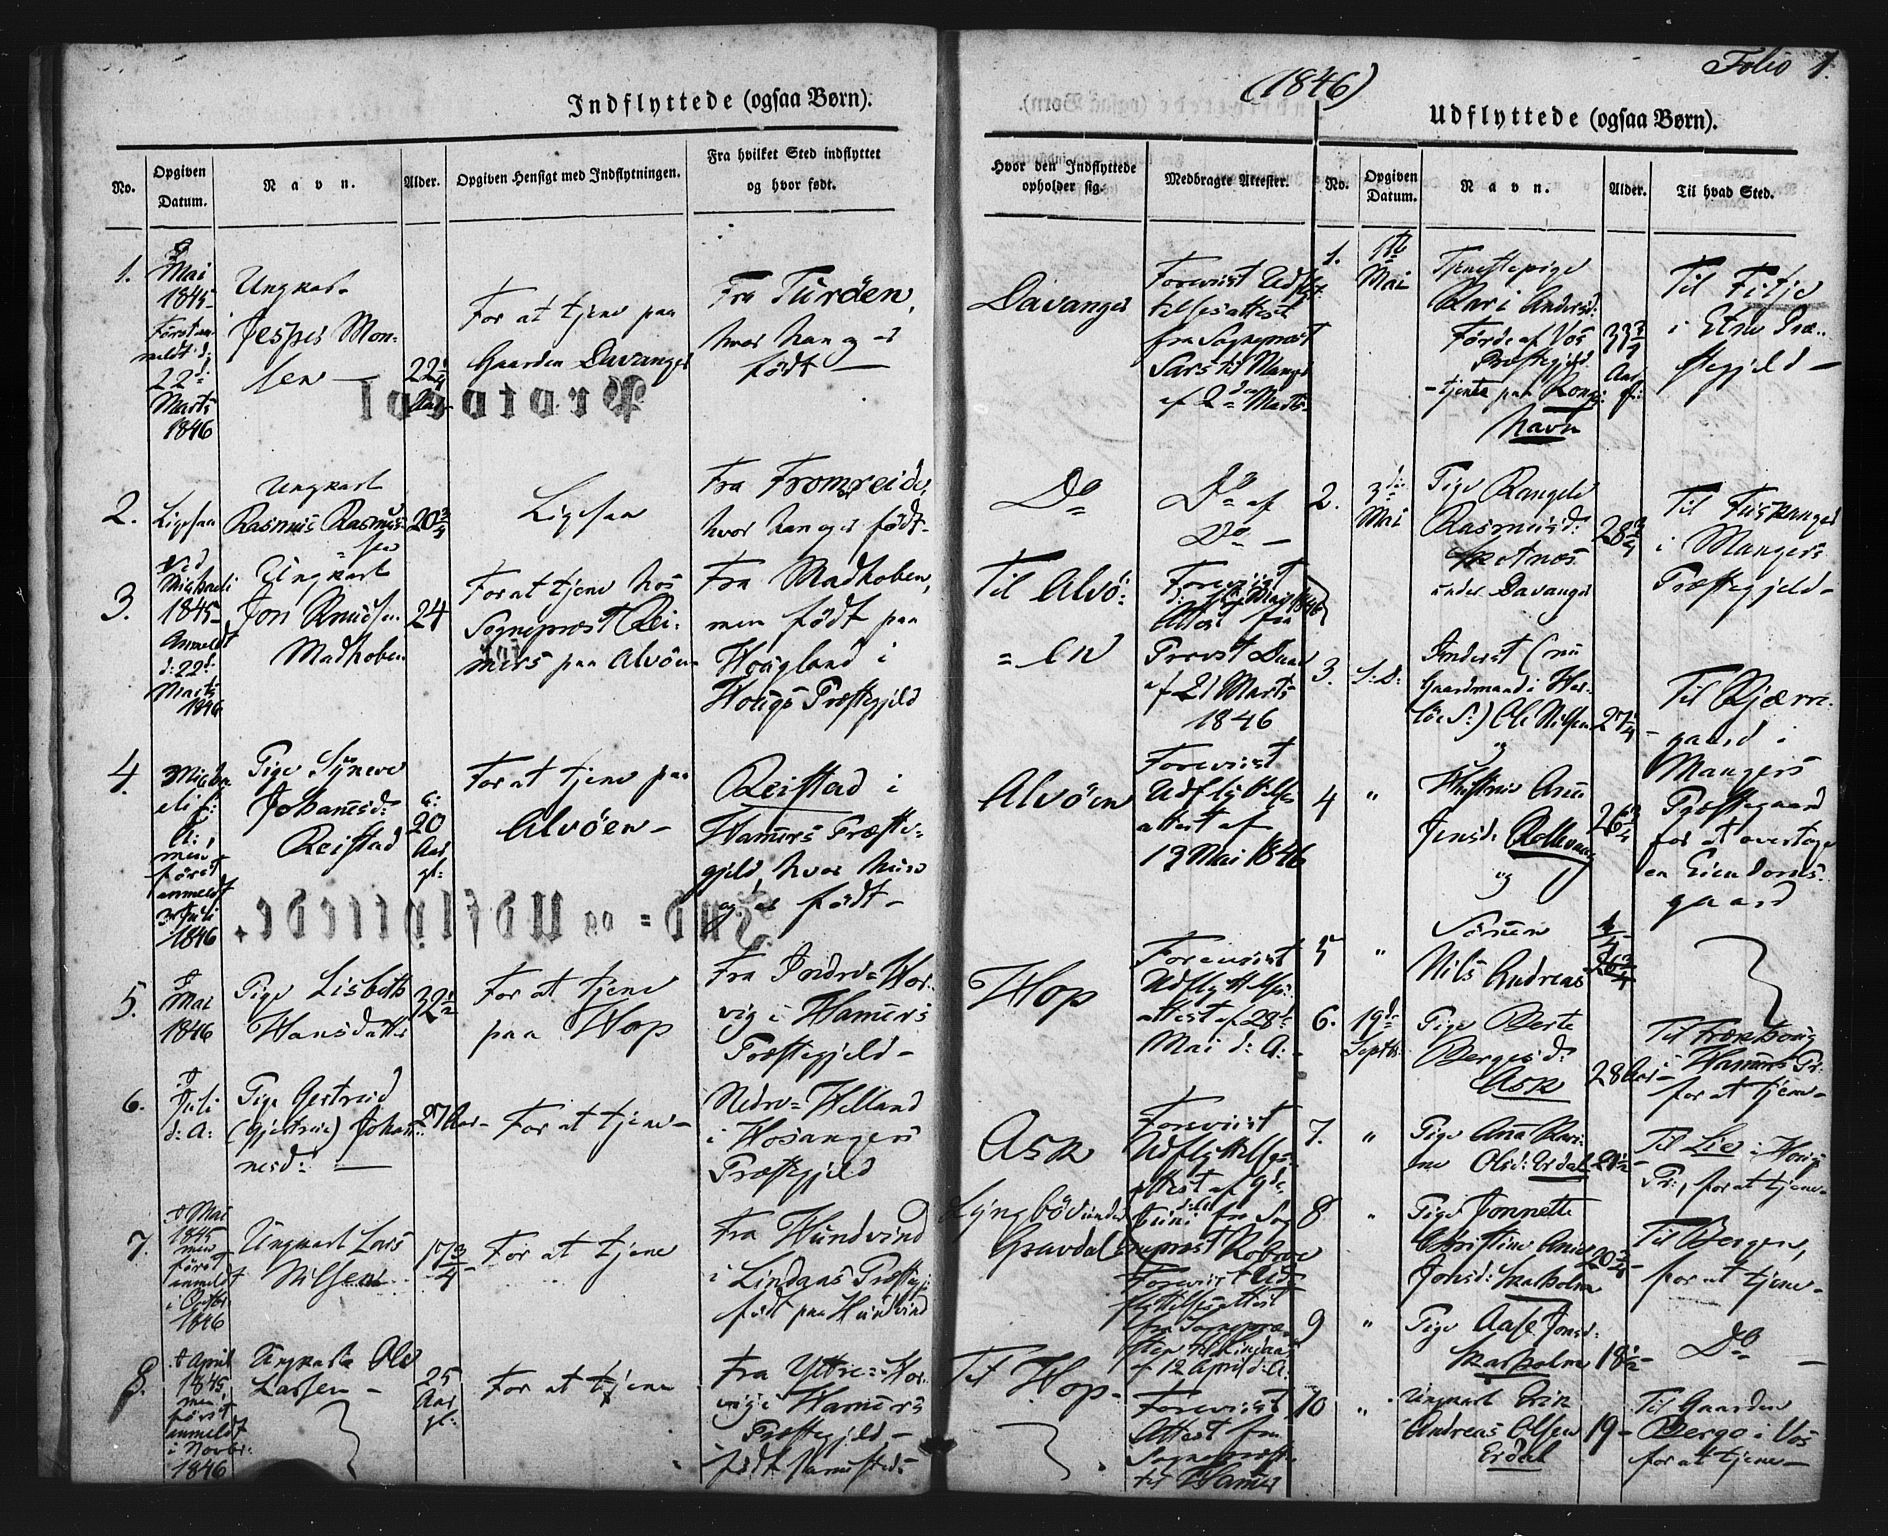 Folio 1.
(1846)
Indflyttede (ogsaa Børn).
No.
Opgiven Datum.
Navn.
Alder.
Opgiven Hensigt med Indflytningen.
Fra hvilket Sted indflyttet og hvor født.
Hvor den Indflyttede opholder sig.
Medbragte Attester.
1.
Mai
1845
Først an-
meldt d:
22d:
Marts
1846
Ungkarl
Jesper Mon-
sen
22 1/4
Aar
For at tjene paa
Gaarden Davanger
Fra Turöen,
hvor han og er
födt
Davanger
Foreviist Udflyt-
telsesattest
fra Sognepræst
Sars til Manger
af 2den Marts
2.
Ligesaa
Ungkarl
Rasmus Rasmus-
sen
20 3/4
Ligesaa
Fra Fromreide,
hvor han og er födt
Do
Do af
Do
3.
Ved
Michaeli
1845
Anmeldt
d: 22d:
Marts
1846
Ungkarl
Jon Knudsen
Madhoben
24
For at tjene hos
Sognepræst Rei-
mers paa Alvöen
Fra Madhoben,
men födt paa
Hougland i
Hougs Præstegjeld
Til Alvö-
en
Foreviist
Attest fra
Provst Daae
af 21 Marts
1846
4.
Micha-
eli f:
A:,
men
först
anmeldt
3 Juli
1846
Pige Synneve
Johannesd:
Reistad
c:
20
Aar
gl:
For at tjene paa
Alvöen
Reistad i
Hammers Præste-
gjeld, hvor hun
og er födt
Alvöen
Foreviist
Udflyttelses
attest af
19 Mai 1846
5.
Mai
1846
Pige Lisbeth
Hansdatter
32 1/2
For at tjene
paa Hop
Fra Indre-Hor-
vig i Hammers
Præstegjeld
Hop
Foreviist
Udflyttelses-
attest af 28de
Mai d: A:
6.
Juli
d: A:
Pige Gertrud
(Gjertrue) Johan-
nesd:
27 Aar
For at tjene
Nedre-Helland
i Hosangers
Præstegjeld
Ask
Foreviist
Udflyttelses-
attest af 9de
Juni fra Sog-
nepræst
7.
Mai
1845
men
först
anmeldt
i Octbr
1846
Ungkarl Lars
Nilsen
17 3/4
For at tjene
Fra Hundvind
i Lindaas Præstegj:
födt paa Hundvind
Lyngbö under
Gravdal
Foreviist Ud-
flyttelsesattest
fra Sognepræ-
sten til Lindaas
af 12 April d: A:
8.
April
1845,
men
först
anmeldt
i Novbr:
1846
Ungkarl Ole
Larsen
25
Aar
gl:
For at tjene
Fra Yttre-Hor-
vig i Hammers
Præstegjeld
födt sammesteds
Til Hop
Foreviist
Attest fra
Sognepræsten
til Hammer
Udflyttede (ogsaa Børn).
No.
Opgiven Datum.
Navn.
Alder.
Til hvad Sted.
1.
1te
Mai
Tjenestepige
Kari Andersd:
Förde af Vos
Præstegjeld
tjente paa Kongs-
havn
33 3/4
Aar
gl:
Til Fitje
i Etne Præ-
stegjeld
2.
3die
Mai
Pige Rangele
Rasmusd:
Anes
under Davanger
28 3/4
Til Fuskanger
i Mangers
Præstegjeld
3.
S: D:
Inderst (nu
Gaardmand i Her-
löe S:) Ole Nilsen
og
27 1/4
Til Bjærre-
gaard i
Mangers
Præstegaard
for at overtage
en Eiendoms-
gaard
4
"
Hustrue Anna
Jensd:
og
26 3/4
5
"
Sönnen
Nils Andreas
6.
19de
Septbr:
Pige Berte
Bergesd:
Ask
28 Aar
Til
i Hammers Pr:
for at tjene
7.
"
Pige Ana Kari-
ne Olsd: Erdal
20 1/2
Til Lie i Hougs
Pr:, for at tjene
8
"
Pige Jonnette
Christine Anne
Jonsd: Skarholm
20 3/4
Til Bergen,
for at tjene
9
"
Pige Aase Jonsd:
Skarholm
18 1/2
Do
10
"
Ungkarl Erik
Andreas Olsen
Erdal
19
Til Gaarden
Berge i Vos
for at tjene
Protocol
Ind- og Udflyttede.